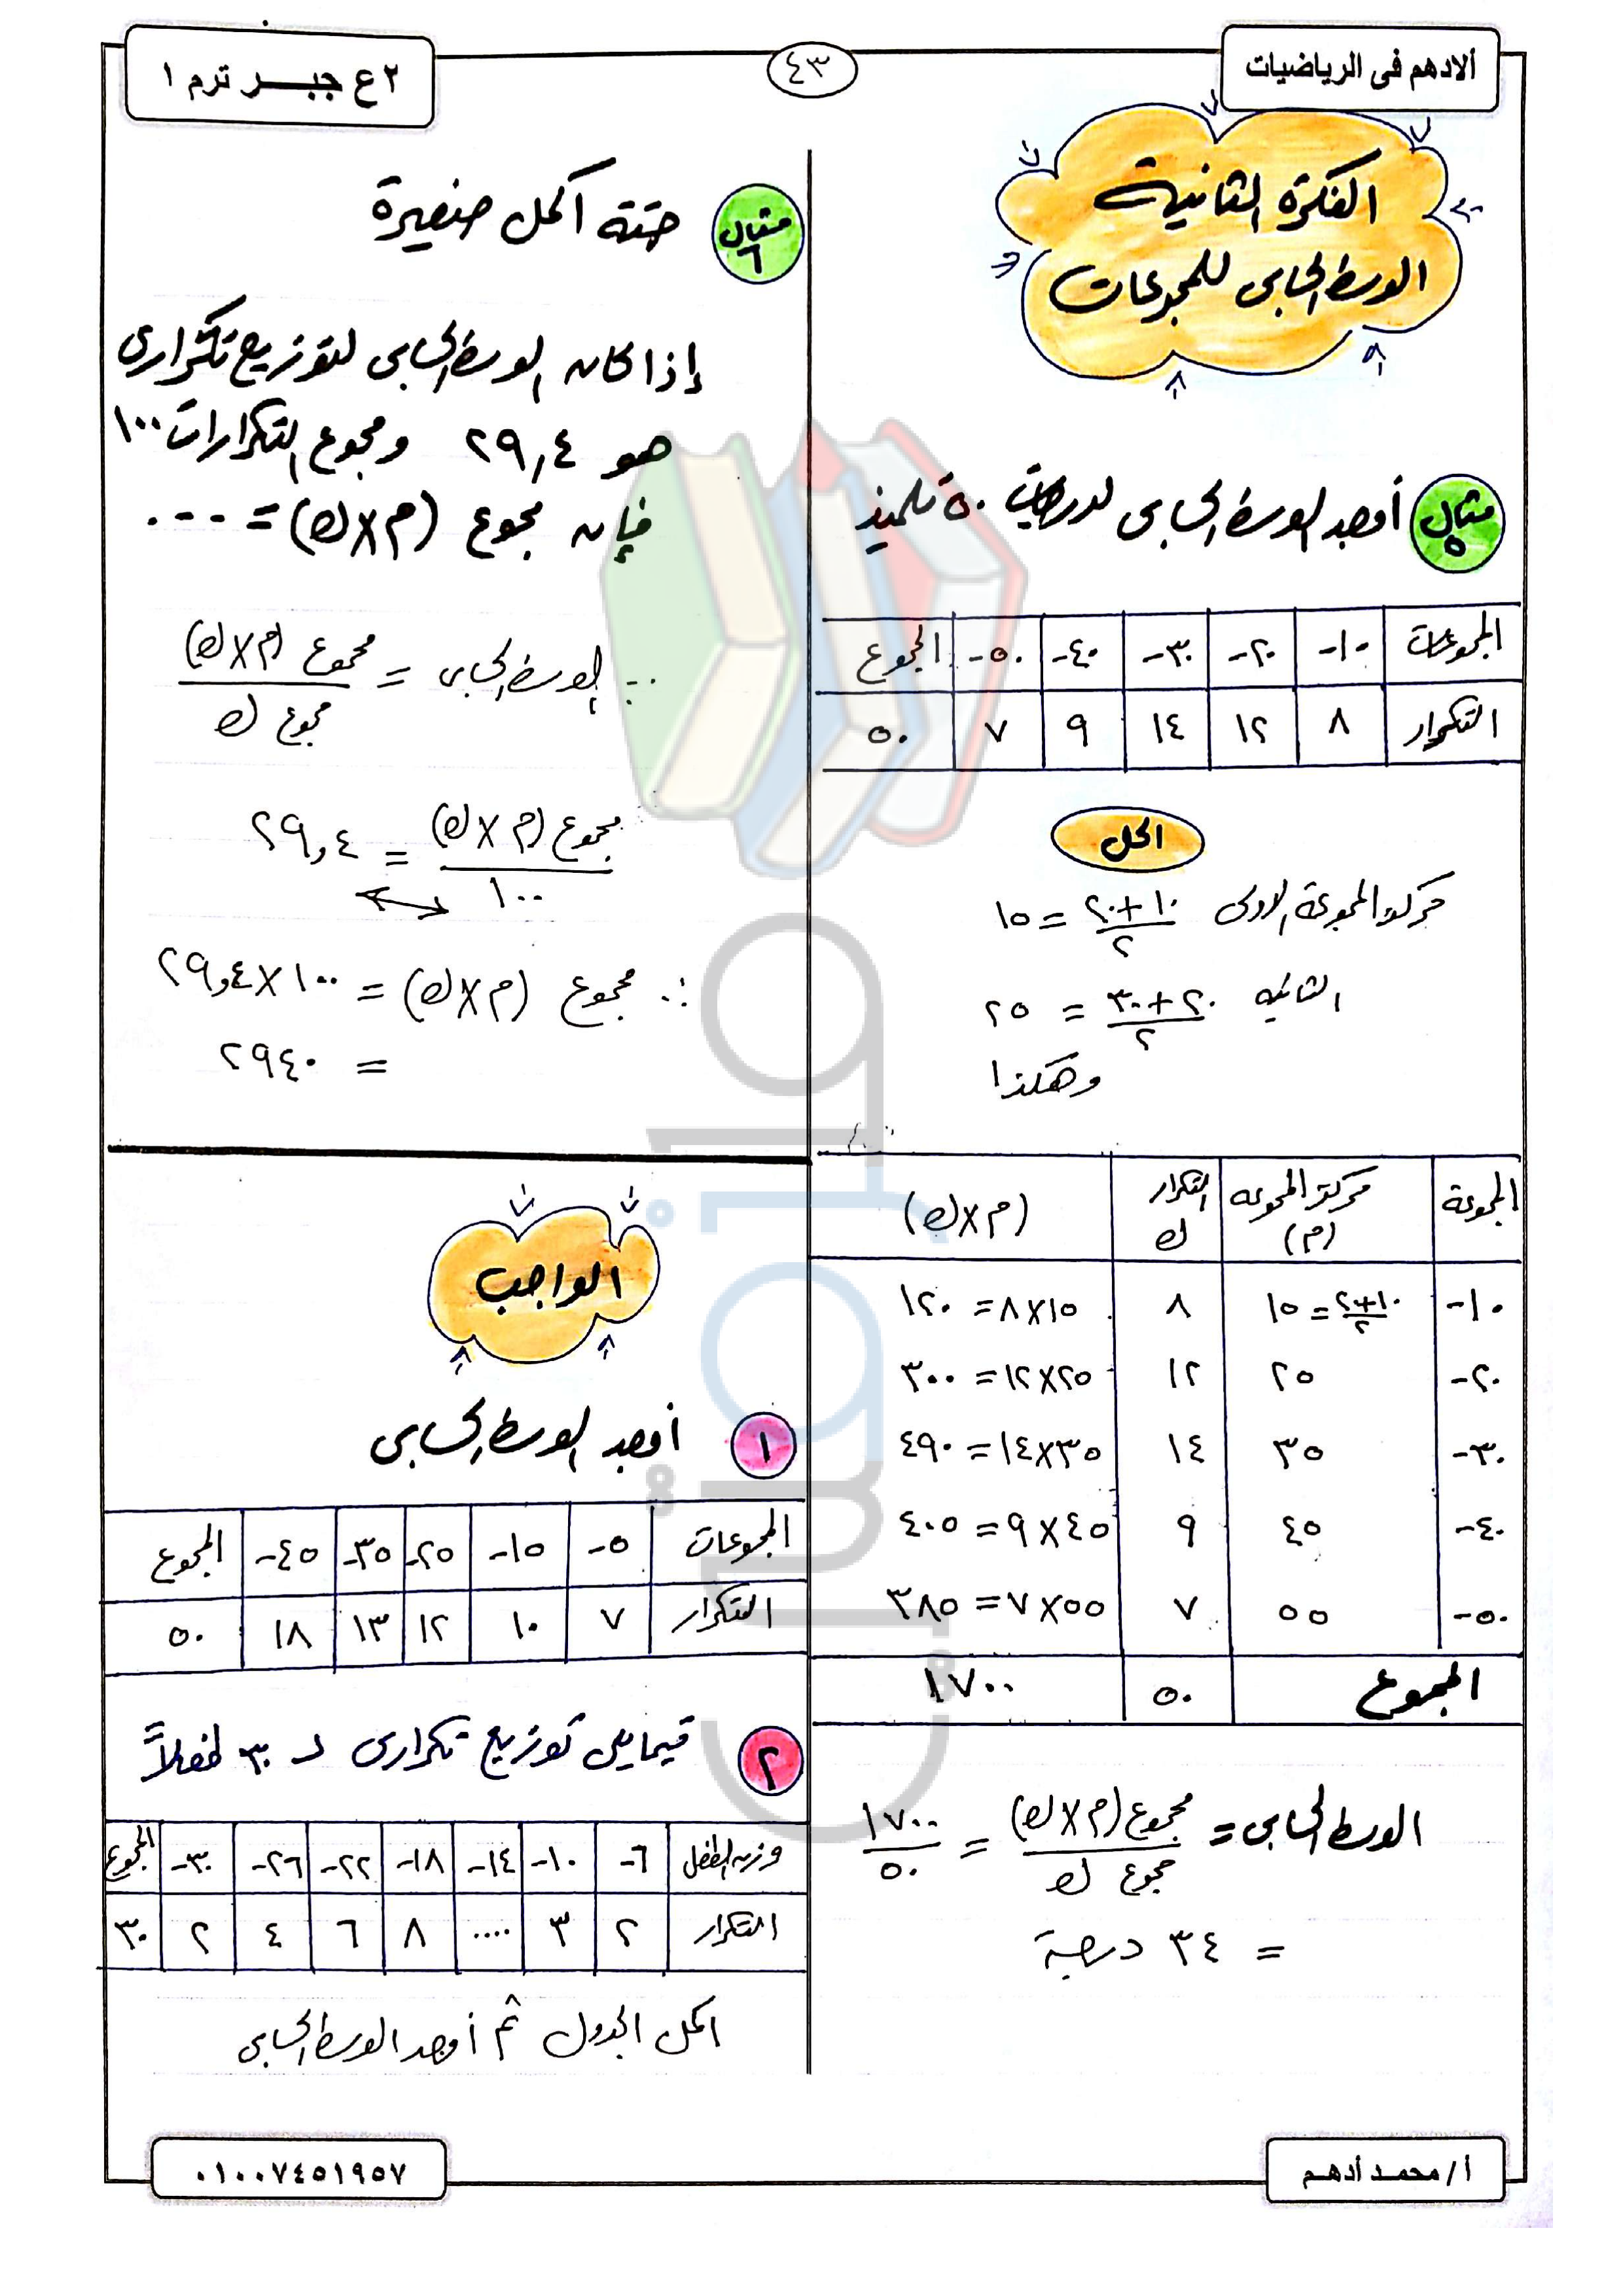 ألادهم فى الرياضيات
٤٣
٢ ع جبـــر ترم ١
الفكرة الثانية
الوسط الحسابى للمجموعات
مثال ٥ أوجد الوسط الحسابى لدرجات ٥٠ تلميذ
المجموعات ١٠- ٢٠- ٣٠- ٤٠- ٥٠- المجموع
التكرار ٨ ١٢ ١٤ ٩ ٧ ٥٠
الحل
مركز المجموعة الاولى ١٠+٢٠/٢ = ١٥
الثانيه ٢٠+٣٠/٢ = ٢٥
وهكذا
المجموعة مركز المجموعه (م) التكرار ك (م×ك)
١٠- ١٠+٢٠/٢ = ١٥ ٨ ١٥×٨ = ١٢٠
٢٠- ٢٥ ١٢ ٢٥×١٢ = ٣٠٠
٣٠- ٣٥ ١٤ ٣٥×١٤ = ٤٩٠
٤٠- ٤٥ ٩ ٤٥×٩ = ٤٠٥
٥٠- ٥٥ ٧ ٥٥×٧ = ٣٨٥
المجموع ٥٠ ١٧٠٠
الوسط الحسابى = مجموع (م×ك)/مجموع ك = ١٧٠٠/٥٠
= ٣٤ درجة
مثال ٦ حتته اكمل صغيرة
إذا كان الوسط الحسابى لتوزيع تكرارى
هو ٢٩,٤ ومجموع التكرارات ١٠٠
فإن مجموع (م×ك) = ...
∵ الوسط الحسابى = مجموع (م×ك)/مجموع ك
مجموع (م×ك)/١٠٠ = ٢٩,٤
∴ مجموع (م×ك) = ١٠٠×٢٩,٤
= ٢٩٤٠
الواجب
١ أوجد الوسط الحسابى
المجموعات ٥- ١٥- ٢٥- ٣٥- ٤٥- المجموع
التكرار ٧ ١٠ ١٢ ١٣ ١٨ ٥٠
٢ فيمايلى توزيع تكرارى لـ ٣٠ طفلاً
وزن الطفل ٦- ١٠- ١٤- ١٨- ٢٢- ٢٦- ٣٠- المجموع
التكرار ٢ ٣ .... ٨ ٦ ٤ ٢ ٣٠
اكمل الجدول ثم أوجد الوسط الحسابى
أ / محمـد أدهـم
٠١٠٠٧٤٥١٩٥٧